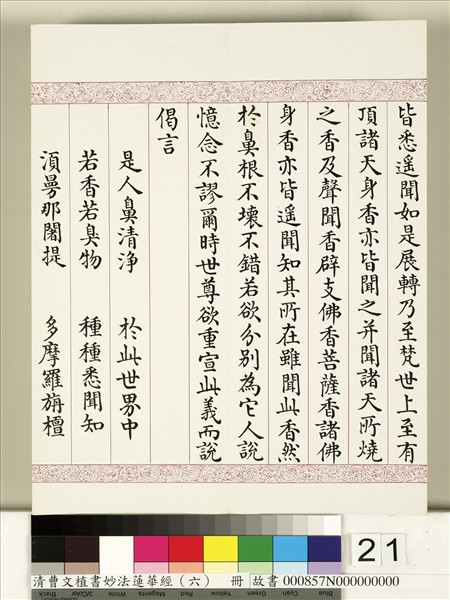 皆悉遙聞如是展轉乃至梵世上至有
頂諸天身香亦皆聞之并聞諸天所燒
之香及聲聞香辟支佛香菩薩香諸佛
身香亦皆遙聞知其所在雖聞此香然
於鼻根不壞不錯若欲分別為它人說
憶念不謬爾時世尊欲重宣此義而說
偈言
是人鼻清淨 於此世界中
若香若臭物 種種悉聞知
須曼那闍提 多摩羅旃檀
21
清曹文植書妙法蓮華經（六） 冊 故書 000857N000000000
Black 3/Color White Magenta Red Yellow Green Cyan Blue